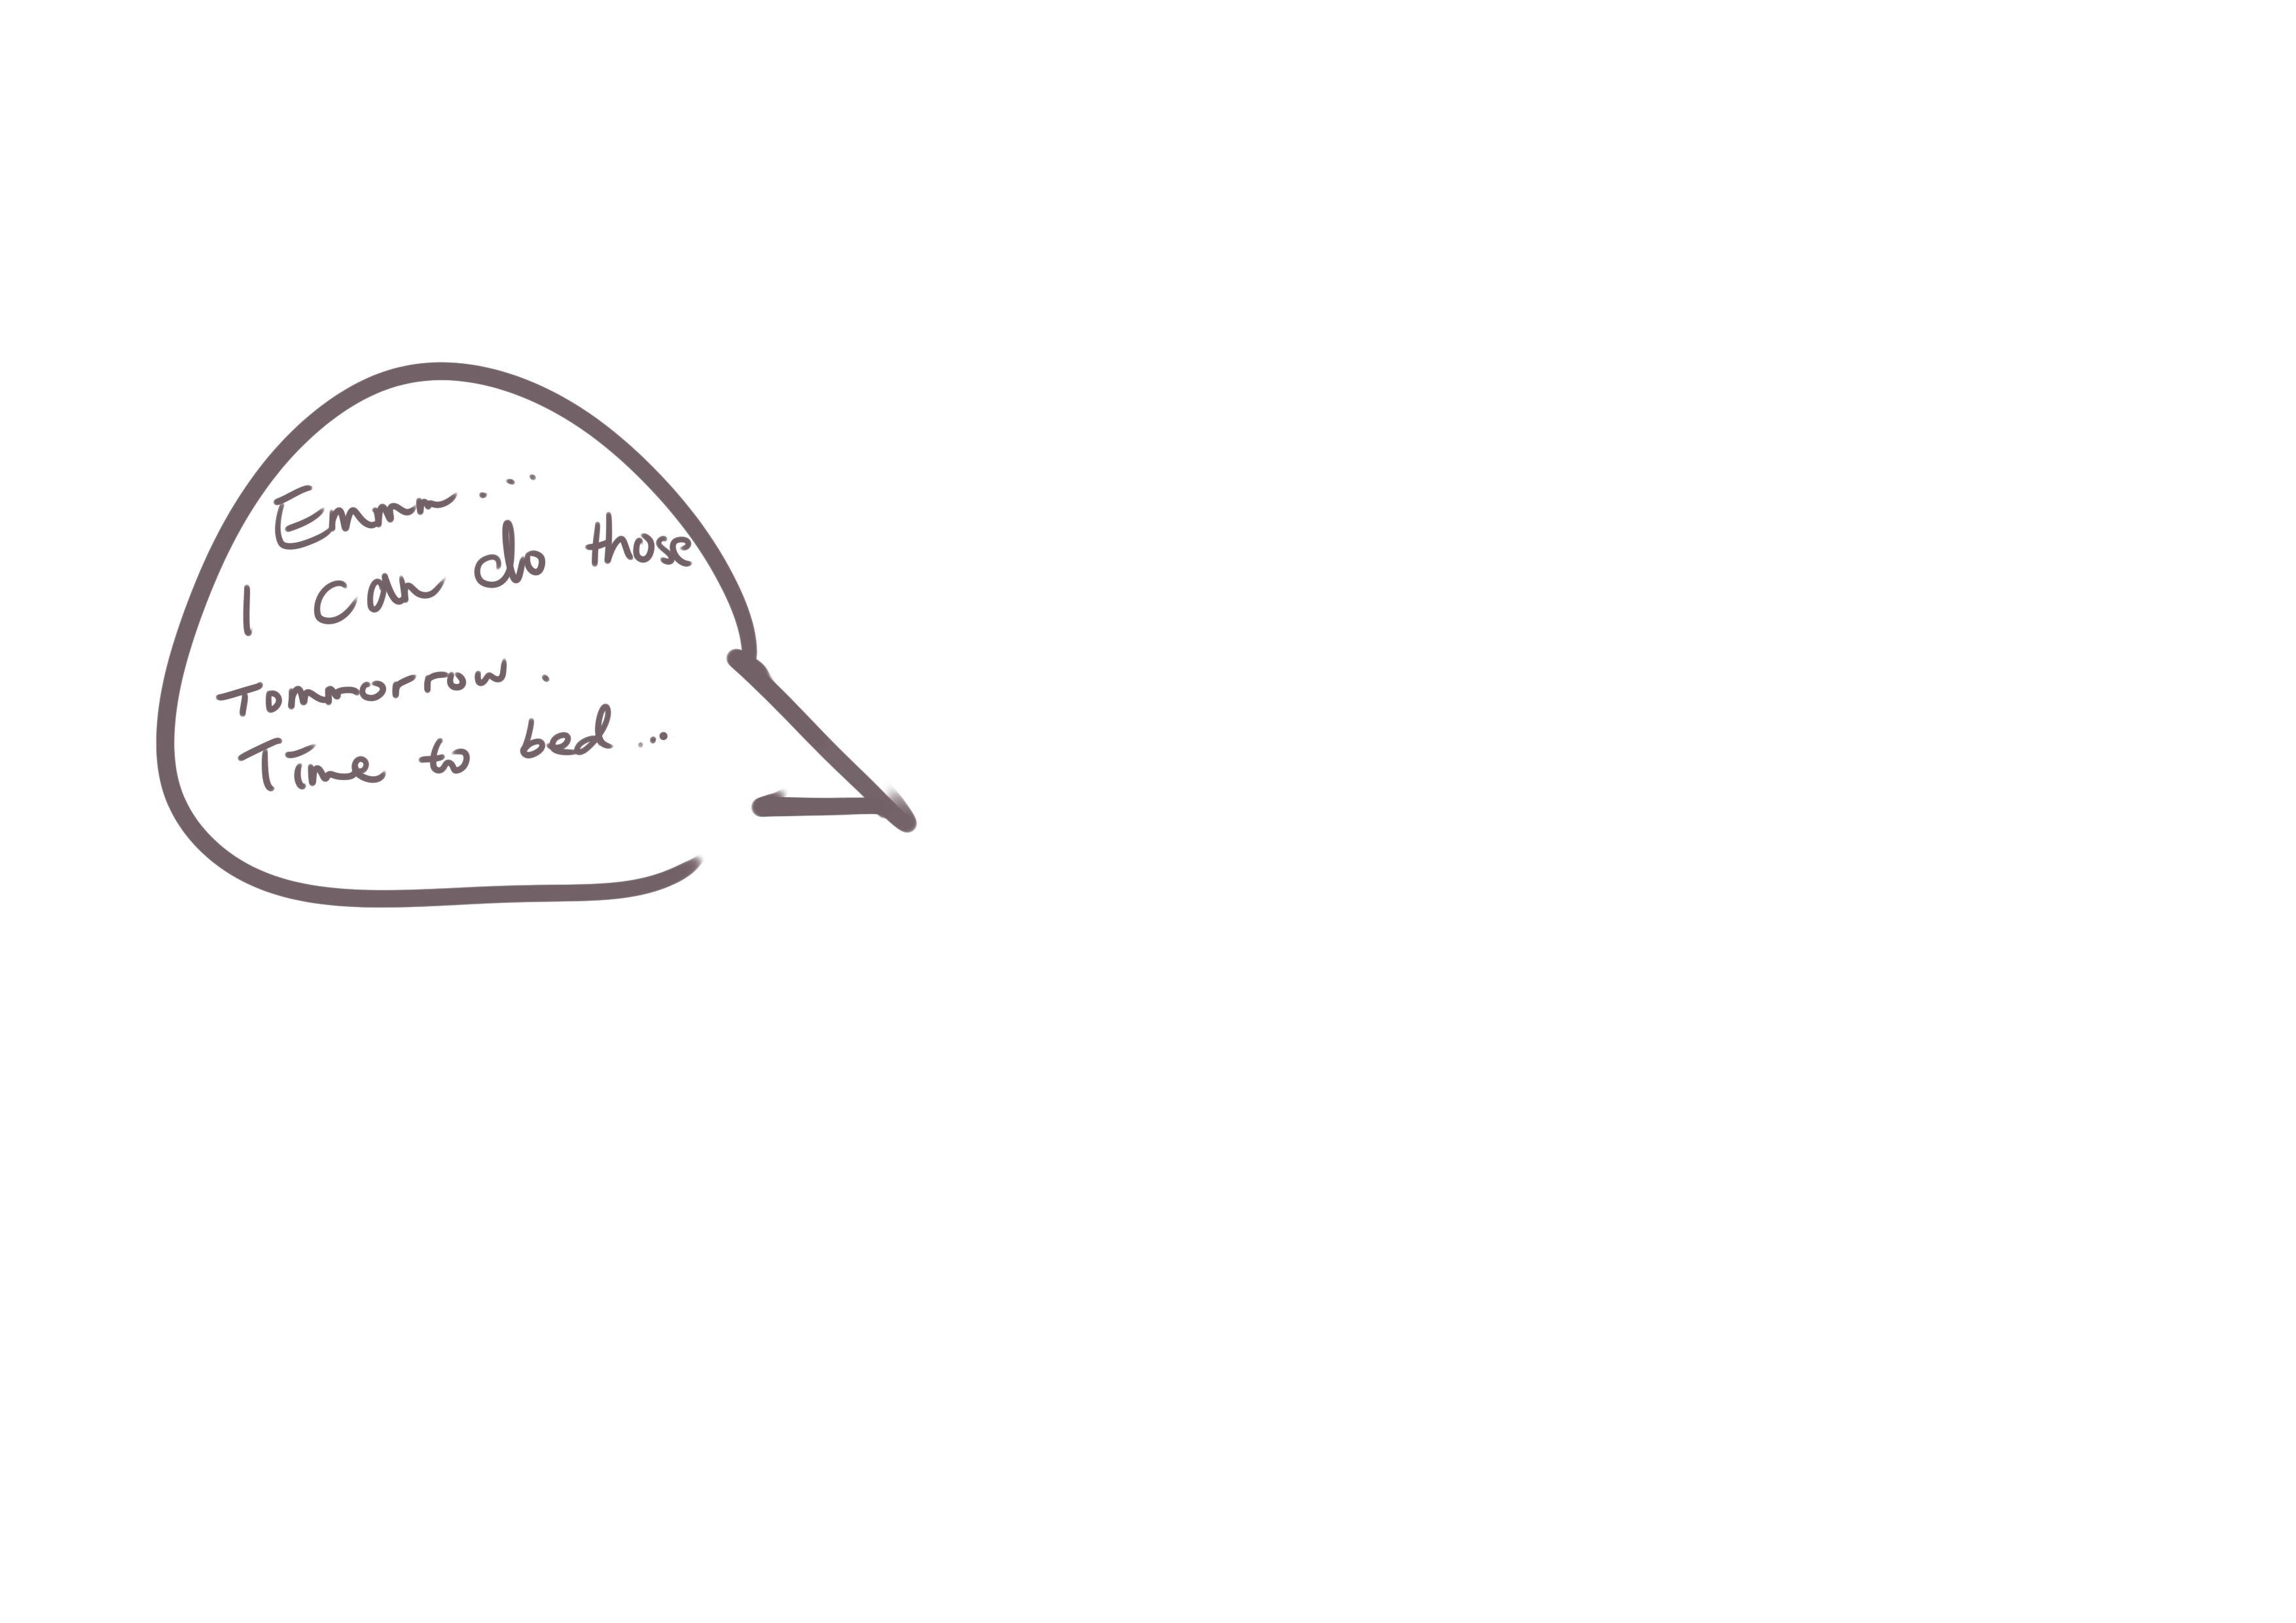 Emm....
I can do those
Tommorrow.
Time to bed...